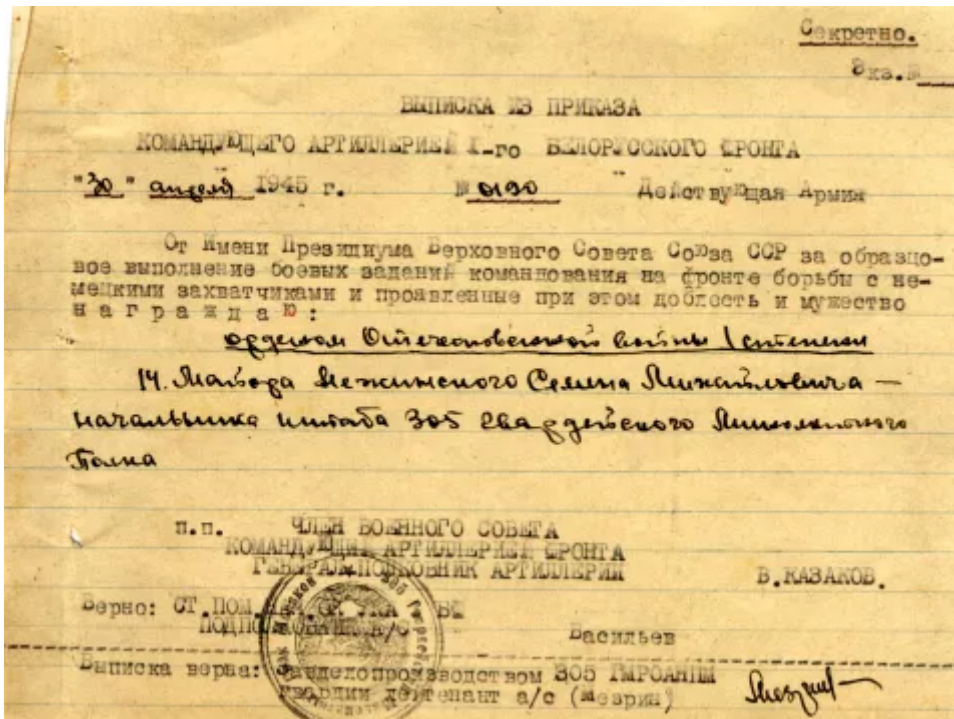 Секретно.
Экз.№
ВЫПИСКА ИЗ ПРИКАЗА
КОМАНДУЮЩЕГО АРТИЛЛЕРИЕЙ I-го БЕЛОРУССКОГО ФРОНТА
"30" апреля 1945 г. № 0190 Действующая Армия
От Имени Президиума Верховного Совета Союза ССР за образцо-
вое выполнение боевых заданий командования на фронте борьбы с не-
мецкими захватчиками и проявленные при этом доблесть и мужество
н а г р а ж д а ю :
орденом Отечественной войны I степени
14. Майора Нежинского Семена Михайловича —
начальника штаба 305 гвардейского Минометного
Полка
п.п. ЧЛЕН ВОЕННОГО СОВЕТА
КОМАНДУЮЩИЙ АРТИЛЛЕРИЕЙ ФРОНТА
ГЕНЕРАЛ-ПОЛКОВНИК АРТИЛЛЕРИИ В.КАЗАКОВ.
Верно: СТ.ПОМ.
ПОДПОЛКОВНИК А/С Васильев
Выписка верна: Завделопроизводством 305
гвардии лейтенант а/с (Мезрин)